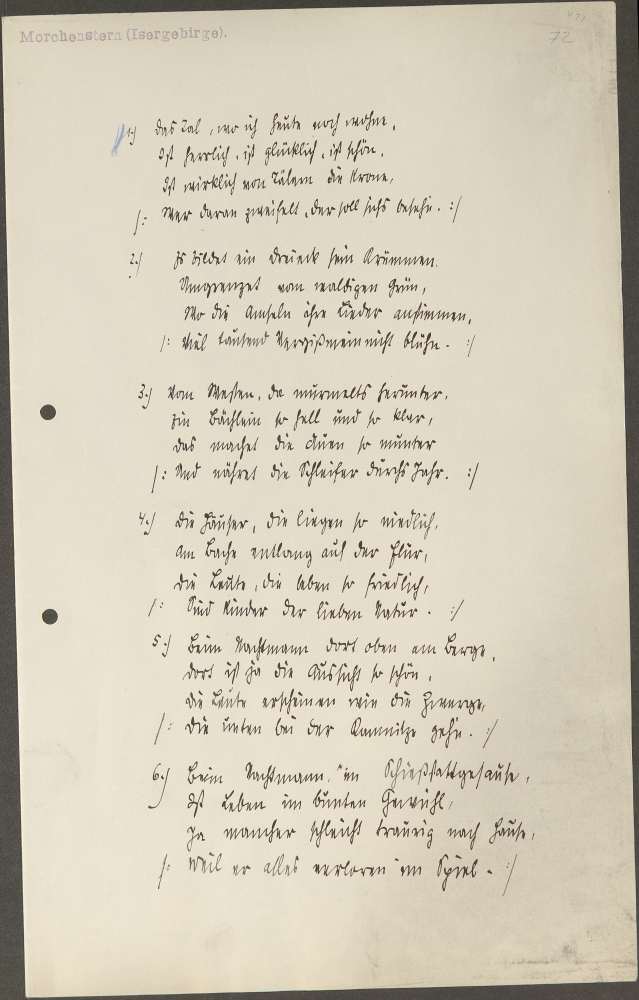 Morchenstern (Isergebirge).
72
1.) Das Tal, wo ich heute noch wohne,
Ist herrlich, ist glücklich, ist schön,
Ist wirklich von Tälern die Krone,
/: Wer daran zweifelt, der soll sichs besehn. :/
2.) Es bildet ein Dreieck sein Krümmen
Umgrenzet vom waldigen Grün,
Wo die Amseln ihre Lieder anstimmen,
/: Viel tausend Vergißmeinnicht blühn. :/
3.) Vom Westen, da murmelts herunter,
Ein Bächlein so hell und so klar,
Das machet die Auen so munter
/: Und nähret die Schleifer durchs Jahr. :/
4.) Die Häuser, die liegen so niedlich,
Am Bache entlang auf der Flur,
Die Leute, die leben so friedlich,
/: Sind Kinder der lieben Natur. :/
5.) Beim Nachtmann dort oben am Berge,
Dort ist ja die Aussicht so schön,
Die Leute erscheinen wie die Zwerge,
/: Die unten bei der Kamnitze gehn. :/
6.) Beim Nachtmann, im Schießstattgesause,
Ist Leben im bunten Gewühl,
Ja mancher schleicht traurig nach Hause,
/: Weil er alles verloren im Spiel. :/